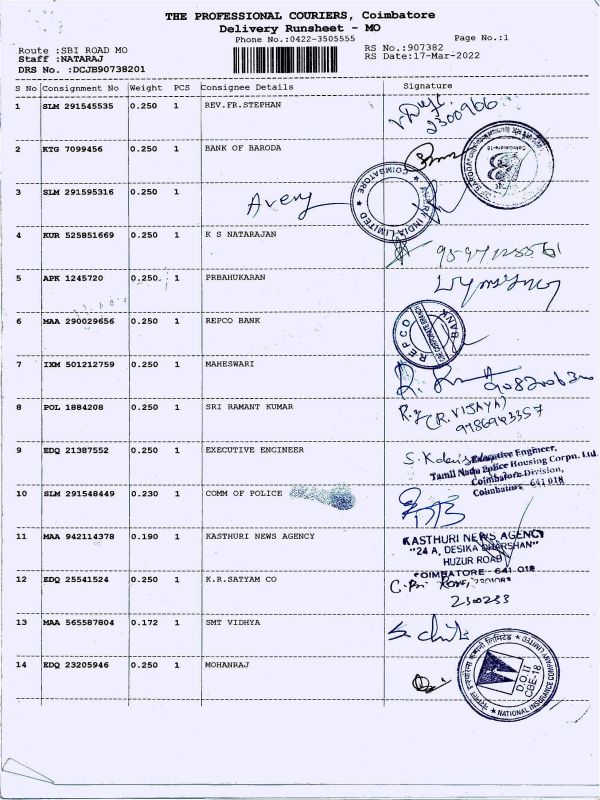 THE PROFESSIONAL COURIERS, Coimbatore
Delivery Runsheet - MO
Phone No.:0422-3505555
Page No.:1
Route :SBI ROAD MO
RS No.:907382
Staff :NATARAJ
RS Date:17-Mar-2022
DRS No. :DCJB90738201
S No Consignment No Weight PCS Consignee Details Signature
1 SLM 291545535 0.250 1 REV.FR.STEPHAN
2300966
2 KTG 7099456 0.250 1 BANK OF BARODA
3 SLM 291595316 0.250 1 Avery
COIMBATORE INDIA LIMITED
4 KUR 525851669 0.250 1 K S NATARAJAN
5 APK 1245720 0.250 1 PRBAHUKARAN
6 MAA 290029656 0.250 1 REPCO BANK
REPCO BANK
7 IXM 501212759 0.250 1 MAHESWARI
8 POL 1884208 0.250 1 SRI RAMANT KUMAR
(R. VIJAYA)
9 EDQ 21387552 0.250 1 EXECUTIVE ENGINEER
Executive Engineer,
Tamil Nadu Police Housing Corpn. Ltd
Coimbatore Division,
Coimbatore 641 018
10 SLM 291548449 0.230 1 COMM OF POLICE
11 MAA 942114378 0.190 1 KASTHURI NEWS AGENCY
KASTHURI NEWS AGENCY
"24 A, DESIKA DHARSHAN"
HUZUR ROAD
COIMBATORE - 641 018
12 EDQ 25541524 0.250 1 K.R.SATYAM CO
2300233
13 MAA 565587804 0.172 1 SMT VIDHYA
14 EDQ 23205946 0.250 1 MOHANRAJ
नेशनल इन्श्योरेन्स कम्पनी लिमिटेड
D.O.II
CBE-18
NATIONAL INSURANCE COMPANY LIMITED